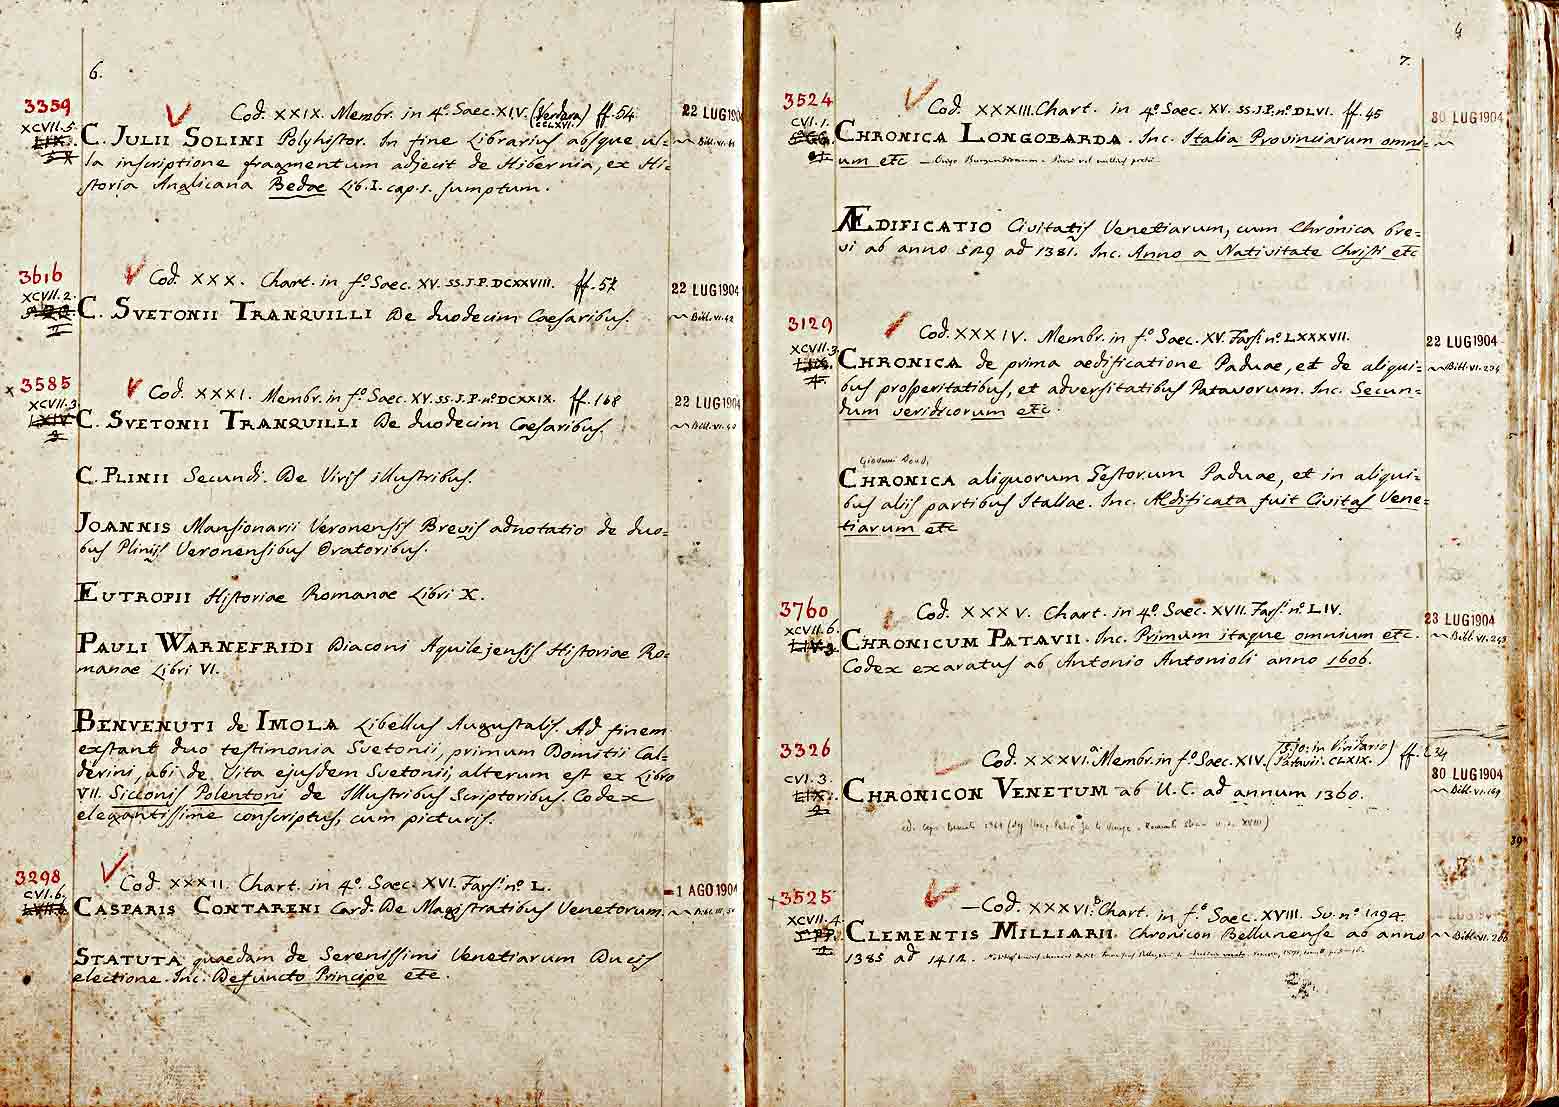 6.
3359
Cod. XXIX. Membr. in 4º. Saec. XIV. (Verdara CCLXVI.) ff. 54
22 LUG 1904
XCVII. 5.
C. JULII SOLINI Polyhistor. In fine Librarius absque ul=
la inscriptione fragmentum adjecit de Hibernia, ex Hi=
storia Anglicana Bedae Lib. I. cap. 1. sumptum.
3616
Cod. XXX. Chart. in fº. Saec. XV. SS. J. P. DCXXVIII. ff. 52
22 LUG 1904
XCVII. 2.
C. SVETONII TRANQUILLI De duodecim Caesaribus.
Bibl. VI. 42
x 3585
Cod. XXXI. Membr. in fº. Saec. XV. SS. J. P. nº. DCXXIX. ff. 168
22 LUG 1904
XCVII. 3.
C. SVETONII TRANQUILLI De duodecim Caesaribus.
C. PLINII Secundi. De Viris illustribus.
JOANNIS Mansionarii Veronensis Brevis adnotatio de duo=
bus Pliniis Veronensibus Oratoribus.
EUTROPII Historiae Romanae Libri X.
PAULI WARNEFRIDI Diaconi Aquilejensis Historiae Ro=
manae Libri VI.
BENVENUTI de IMOLA Libellus Augustalis. Ad finem
exstant duo testimonia Svetonii, primum Domitii Cal=
derini, ubi de Vita ejusdem Svetonii, alterum est ex Libro
VII. Sicconis Polentoni de Illustribus Scriptoribus. Codex
elegantissime conscriptus, cum picturis.
3298
Cod. XXXII. Chart. in 4º. Saec. XVI. Fars. nº. L.
-1 AGO 1904
CVI. 6.
CASPARIS CONTARENI Card. De Magistratibus Venetorum.
STATUTA quaedam de Serenissimi Venetiarum Ducis
electione. Inc. Defuncto Principe etc.
7.
3524
Cod. XXXIII. Chart. in 4º. Saec. XV. SS. J. P. nº. DLVI. ff. 45
30 LUG 1904
CVI. 1.
CHRONICA LONGOBARDA. Inc. Italia Provinciarum omni=
um etc
ÆDIFICATIO Civitatis Venetiarum, cum Chronica bre=
vi ab anno 529 ad 1381. Inc. Anno a Nativitate Christi etc
3129
Cod. XXXIV. Membr. in fº. Saec. XV. Fars. nº. LXXXVII.
22 LUG 1904
XCVII. 3.
CHRONICA de prima aedificatione Paduae, et de aliqui=
bus prosperitatibus, et adversitatibus Patavorum. Inc. Secun=
dum veridicorum etc.
CHRONICA aliquorum Gestorum Paduae, et in aliqui=
bus aliis partibus Italiae. Inc. Aedificata fuit Civitas Vene=
tiarum etc
3760
Cod. XXXV. Chart. in 4º. Saec. XVII. Fars. nº. LIV.
23 LUG 1904
XCVII. 6.
CHRONICUM PATAVII. Inc. Primum itaque omnium etc.
Codex exaratus ab Antonio Antonioli anno 1606.
3326
Cod. XXXVI.ª Membr. in fº. Saec. XIV. (S. Jo: in Viridario Patavii. CLXIX.) ff. 234
30 LUG 1904
CVI. 3.
CHRONICON VENETUM ab U. C. ad annum 1360.
Bibl. VI. 169
3525
Cod. XXXVI.b Chart. in fº. Saec. XVIII. Su. nº. 1294.
XCVII. 4.
CLEMENTIS MILLIARII Chronicon Bellunense ab anno
Bibl. VI. 266
1385 ad 1412.